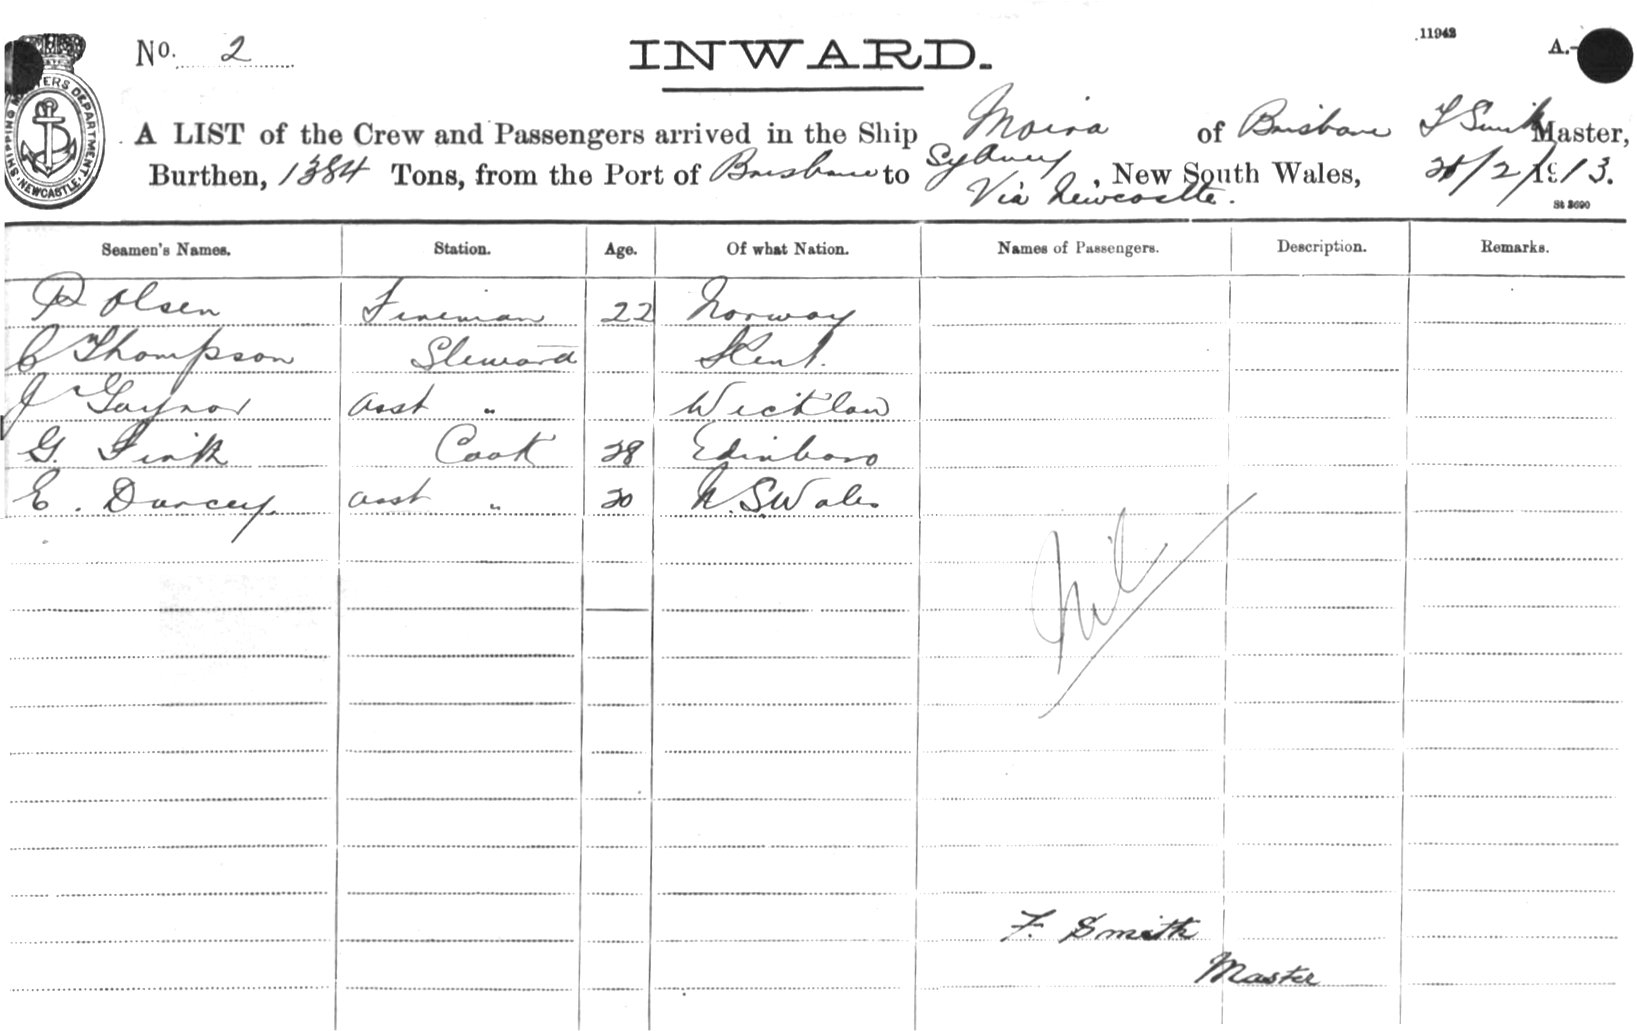 No. 2
INWARD.
11942
A.-
SHIPPING MASTERS DEPARTMENT NEWCASTLE
A LIST of the Crew and Passengers arrived in the Ship Moira of Brisbane F Smith Master,
Burthen, 1384 Tons, from the Port of Brisbane to Sydney, New South Wales, /2/1913.
Via Newcastle.
St 3690
Seamen's Names. Station. Age. Of what Nation. Names of Passengers. Description. Remarks.
Olsen Fireman 22 Norway
C Thompson Steward Kent.
J Gaynor asst " Wicklow
G. Fink Cook 28 Edinboro
E. Darcey. asst " 20 N.S Wales
Nil
F. Smith
Master